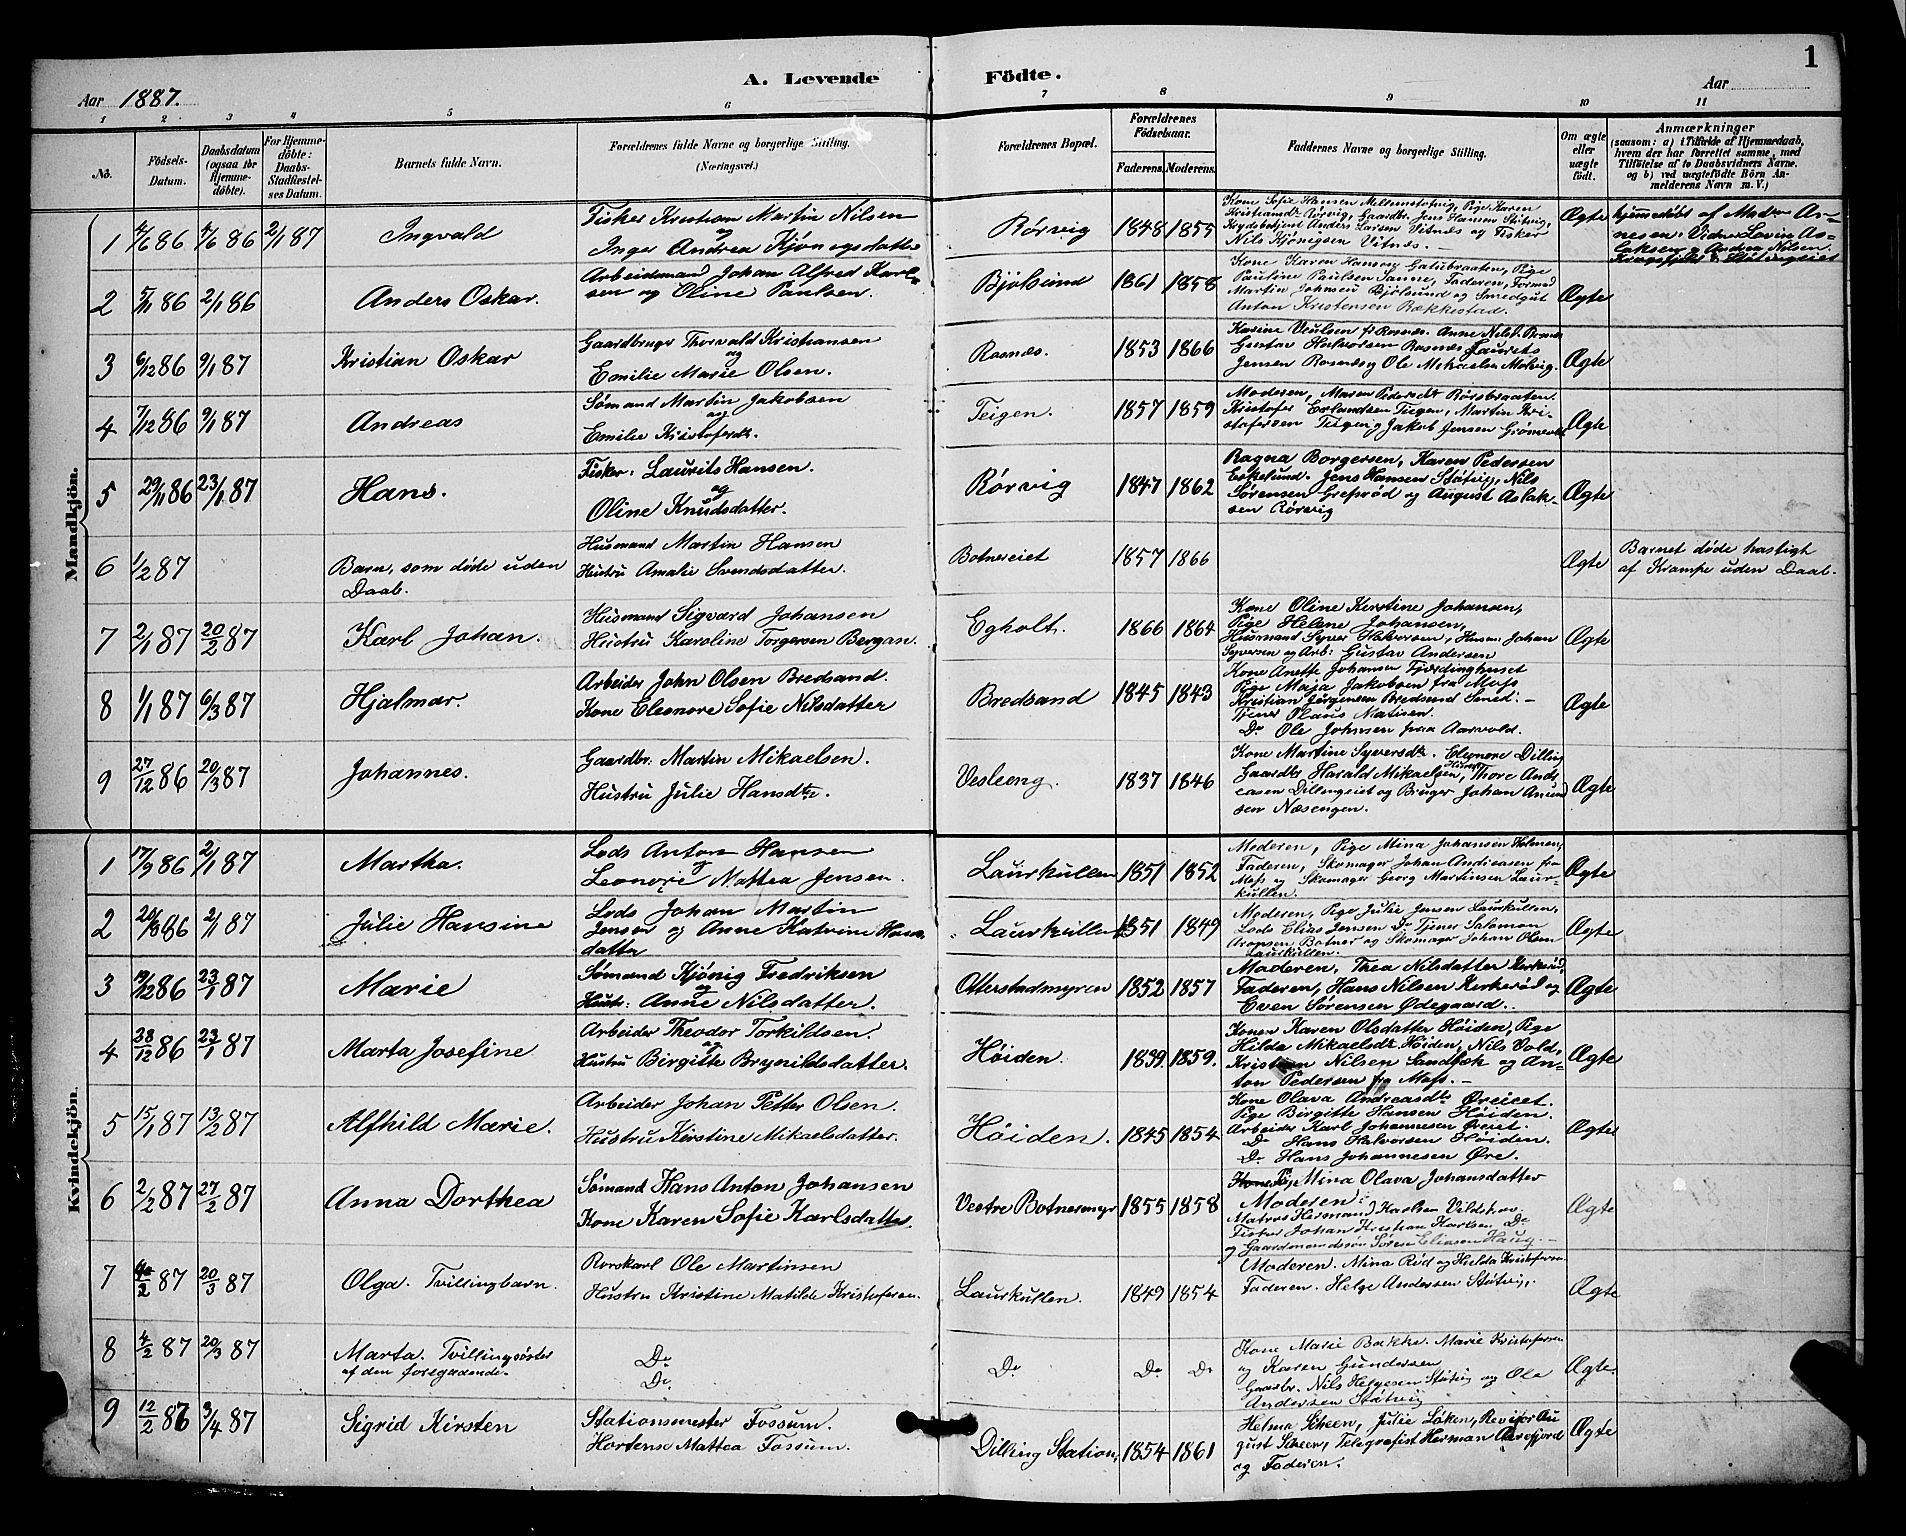 1
A. Levende Födte.
Aar 1887.
Aar
1 2 3 4 5 6 7 8 9 10 11
No.
Födsels-Datum.
Daabsdatum (ogsaa for Hjemmedöbte).
For Hjemmedöbte: Daabs-Stadfæstelses Datum.
Barnets fulde Navn.
Forældrenes fulde Navne og borgerlige Stilling. (Næringsvei.)
Forældrenes Bopæl.
Forældrenes Födselsaar.
Faderens. Moderens.
Faddernes Navne og borgerlige Stilling.
Om ægte eller uægte födt.
Anmærkninger
(saasom: a) i Tilfælde af Hjemmedaab, hvem der har forrettet samme, med Tilföielse af to Daabsvidners Navne, og b) ved uægtefödte Börn Anmelderens Navn m. V.)
Mandkjön.
1 4/6 86 4/6 86 2/1 87 Ingvald
Fisker Kristian Martin Nilsen
og
Inger Andrea Kjønigsdatter
Rørvig 1848 1855
Kone Sofie Hansen Mellemstøtvig, Pige Karen
Kristiansdt Rørvig, Gaardbr. Jens Hansen Støtvig,
Anders Larsen Vitnes og Fisker
Nils Kjønigsen Vitnes.
Ægte
hjemmedøbt af Moder Arnesen. Vidner Lovise Aslaksen og Andrea Nilsen.
2 5/11 86 2/1 86 Anders Oskar.
Arbeidsmand Johan Alfred Karlsen og Oline Paulsen.
Bjølsund 1861 1858
Kone Karen Hansen Galubraaten, Pige
Pauline Paulsen Sanne, Faderen, Formand
Martin Johnsen Bjølsund og Smedgut
Anton Kristensen Bækkestad.
Ægte
3 6/12 86 9/1 87 Kristian Oskar
Gaardbruger Thorvald Kristiansen
og
Emilie Marie Olsen.
Rosnæs. 1853 1866
Gustav Halvorsen Rosnæs Laurits
Jensen Rosnæs og Ole Mikaelsen Molvig.
Ægte
4 7/12 86 9/1 87 Andreas
Sømand Martin Jakobsen
og
Emilie Kristoferdt.
Teigen. 1857 1859
Moderen, Maren Pedersdt Rørsbraaten.
Kristofer Erlandsen Teigen, Martin Kristofersen Teigen og Jakob Jensen
Ægte
5 29/11 86 23/1 87 Hans.
Fisker: Laurits Hansen.
og
Oline Knudsdatter.
Rørvig 1847 1862
Ragna Borgersen, Karen Pedersen
Eskelund. Jens Hansen Støtvig, Nils
Sørensen Greprød og August Aslaksen Rørvig
Ægte
6 1/2 87 Barn, som døde uden
Daab.
Husmand Martin Hansen
Hustru Amalie Svendsdatter.
Botnereiet 1857 1866 Ægte
Barnet døde hastigt
af Krampe uden Daab.
7 2/1 87 20/2 87 Karl Johan.
Husmand Sigvard Johansen
Hustru Karoline Torgersen Bergan.
Egholt. 1866 1864
Kone Oline Kerstine Johansen,
Pige Helene Johansen,
Husmand Syver Halvorsen, Husm. Johan
Syversen og Arb: Gustav Andersen
Ægte
8 1/1 87 6/3 87 Hjalmar.
Arbeider John Olsen Bredsand.
Kone Eleonore Sofie Nilsdatter
Bredsand 1845 1843
Kone Anette Johansen Fjerdinghuset
Pige Maja Jakobsen fra Moss
Kristian Jørgensen Bredsand Smed. –
Tjener Olaus Matisen.
Do Ole Johnsen fraa Aarvold.
Ægte
9 27/12 86 20/3 87 Johannes.
Gaardbr. Martin Mikaelsen.
Hustru Julie Hansdtr.
Vesleeng. 1837 1846
Kone Martine Syversdt. Elenore Dilling
Gaardbr Harald Mikaelsen, Thore Andreasen Dillingeiet og Bruger Johan Amundsen Næsengen.
Ægte
Kvindekjön.
1 17/9 86 2/1 87 Martha.
Lods Anton Hansen
og
Leonore Mattea Jensen.
Laurkullen 1851 1852
Moderen, Pige Mina Johansen Holmen,
Faderen, Skomager Johan Andreasen fra
Moss og Skomager Georg Martinsen Laurkullen.
Ægte
2 20/9 86 2/1 87 Julie Hansine
Lods Johan Martin
Jensen og Anne Katrine Hansdatter
Laurkullen 1851 1849
Moderen, Pige Julie Jensen Laurkullen,
Lods Elias Jensen Do Tjener Salomon
Aronsen Botner og Skomager Johan Olsen
Laurkullen.
Ægte
3 19/12 86 23/1 87 Marie
Sømand Kjønig Fredriksen
og
Hustr: Anne Nilsdatter.
Otterstadmyren 1852 1857
Moderen, Thea Nilsdatter Kerkerød,
Faderen, Hans Nilsen Kerkerød og
Even Sørensen Ødegaard.
Ægte
4 28/12 86 23/1 87 Marta Josefine
Arbeider Theodor Torkildsen.
og
Hustru Birgitte Brynildsdatter.
Høiden. 1839 1859.
Konen Karen Olsdatter Høiden, Pige
Hilda Mikaelsdt Høiden, Nils Vold,
Kristian Nilsen Sandbæk og Anton Pedersen fra Moss. –
Ægte
5 15/1 87 13/2 87 Alfhild Marie.
Arbeider Johan Petter Olsen.
Hustru Kerstine Mikaelsdatter.
Høiden. 1845 1854
Kone Olava Andreasdtr Øreiet.
Pige Birgitte Hansen Høiden.
Arbeider Karl Johannesen Øreiet.
Do Hans Halvorsen Høiden.
Do Hans Johannesen Øre.
Ægte
6 2/2 87 27/2 87 Anna Dorthea
Sømand Hans Anton Johansen
Kone Karen Sofie Karlsdatter
Vestre Botnesmyr 1855 1858
Mina Olava Johansdatter
Moderen.
Matros Herman Karlsen
Fisker Johan Kristian Karlsen Do
og Gaardmandssøn Søren Eliasen Haug. –
Ægte
7 2 87 20/3 87 Olga. Tvillingbarn.
Rorskarl Ole Martinsen
Hustru Kristine Matilde Kristofersen.
Laurkullen. 1849 1854
Moderen. Mina Rød og Hulda Kristofersen
Faderen. Helge Andersen Støtvig.
Ægte
8 4/2 87 20/3 87 Marta. Tvillingsøster
af den foregaaende.
Do
Do
Do Do Do
Kone Marie Bakke. Marie Kristofersen
og Karen Gundersen
Gaardbr. Nils Helgesen Støtvig og Ole
Andersen Støtvig
Ægte.
9 12/2 87 3/4 87 Sigrid Kirsten
Stationsmester Fossum.
Hortense Mattea Fossum.
Dilling Station, 1854 1861
Helma Scheen, Julie Løken, Revisor August Scheen, Telegrafist Herman
og Faderen.
Ægte